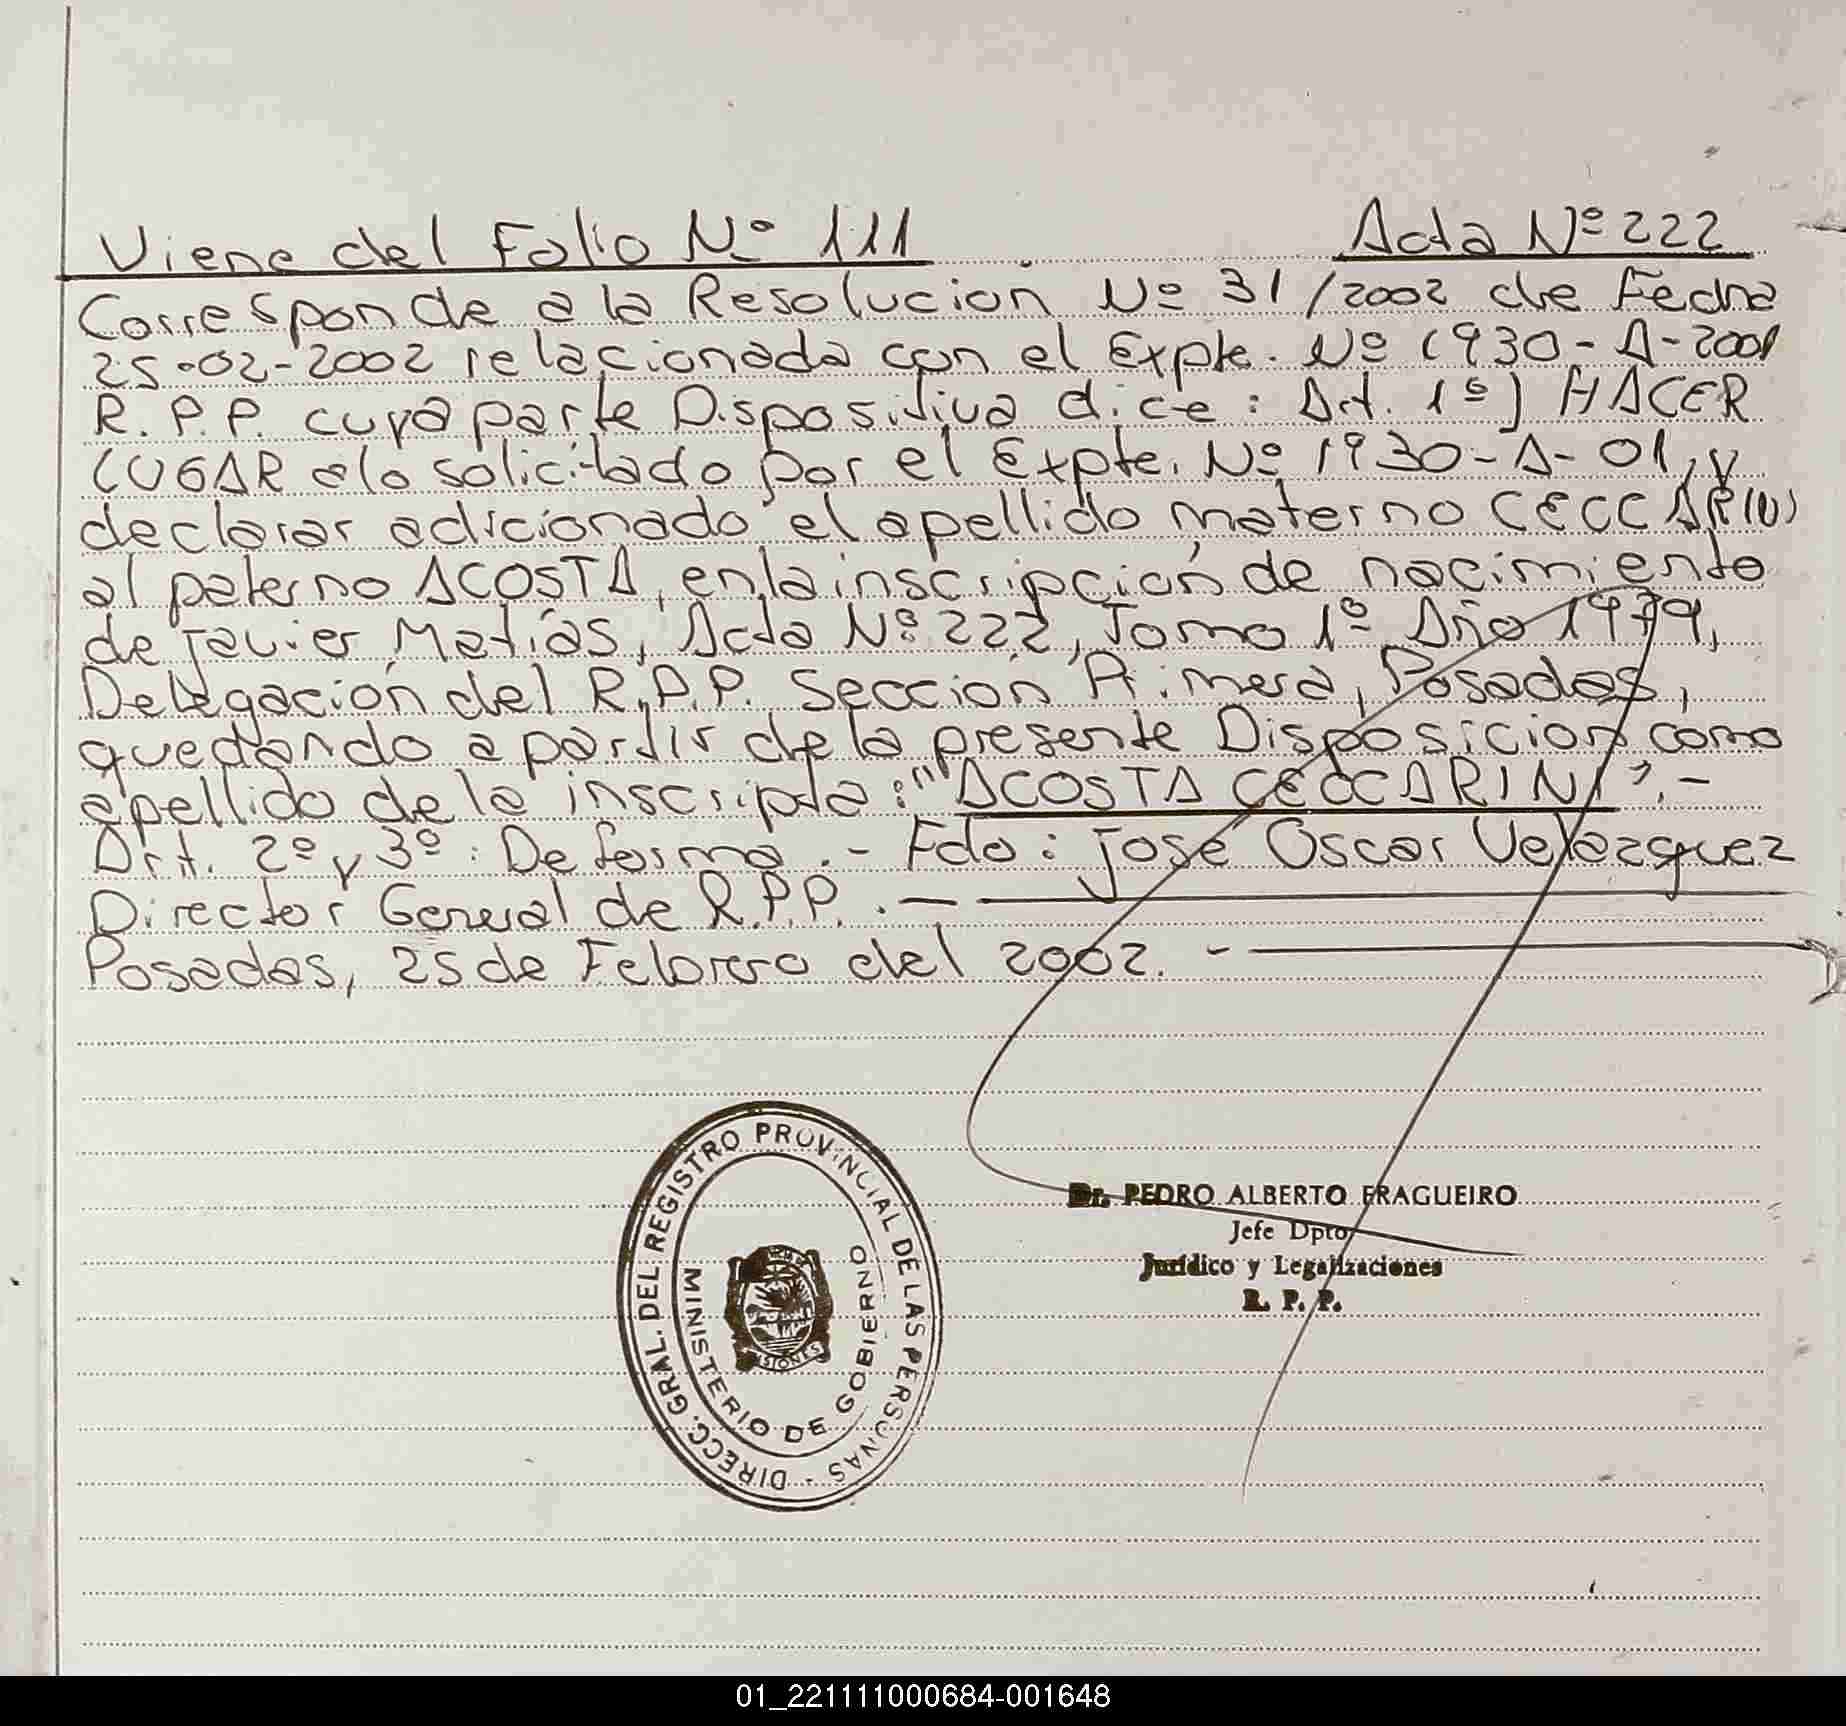 Viene del Folio Nº 111 Acta Nº 222
Corresponde a la Resolucion Nº 31/2002 de Fecha
25-02-2002 relacionada con el Expte. Nº 1930-A-2001
R.P.P. cuya parte Dispositiva dice: Art. 1º) HACER
LUGAR a lo solicitado por el Expte. Nº 1930-A-01, y
declarar adicionado el apellido materno CECCARINI
al paterno ACOSTA, en la inscripción de nacimiento
de Javier Matías, Acta Nº 222, Tomo 1º Año 1979,
Delegación del R.P.P. Sección Primera, Posadas,
quedando a partir de la presente Disposicion como
apellido de la inscripta: "ACOSTA CECCARINI".-
Art. 2º y 3º: De forma.- Fdo: José Oscar Velazquez
Director General de R.P.P..-
Posadas, 25 de Febrero del 2002.-
DIRECC. GRAL. DEL REGISTRO PROVINCIAL DE LAS PERSONAS -
MINISTERIO DE GOBIERNO
MISIONES
Dr. PEDRO ALBERTO FRAGUEIRO
Jefe Dpto
Jurídico y Legalizaciones
R. P. P.
01_221111000684-001648